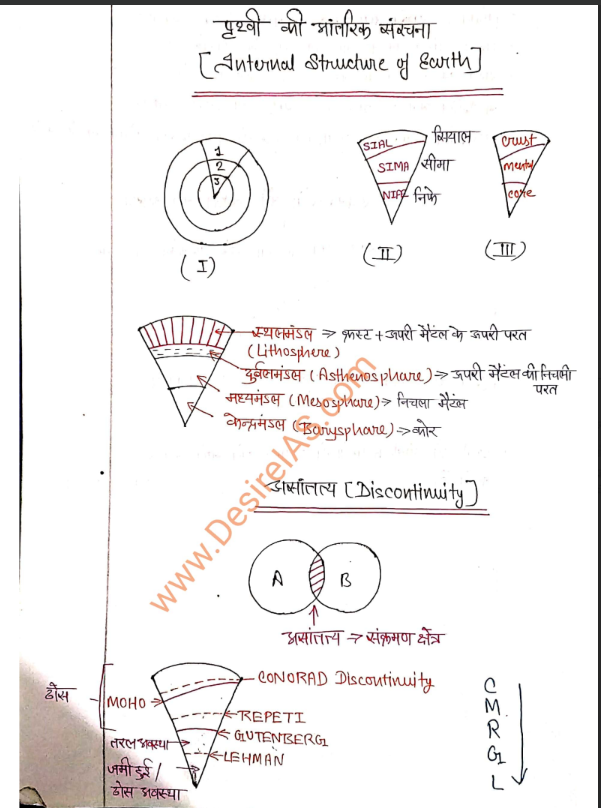 पृथ्वी की आंतरिक संरचना
[Internal Structure of Earth]
1
2
3
(I)
SIAL सियाल
SIMA सीमा
NIFE निफे
(II)
Crust
mental
core
(III)
स्थलमंडल → क्रस्ट + ऊपरी मैंटल के ऊपरी परत
(Lithosphere)
दुर्बलमंडल (Asthenosphare) → ऊपरी मैंटल की निचली
परत
मध्यमंडल (Mesosphare) → निचला मैंटल
केन्द्रमंडल (Barysphare) → कोर
www.DesireIAS.com
असांतत्य [Discontinuity]
A B
असांतत्य → संक्रमण क्षेत्र
CONORAD Discontinuity
ठोस
MOHO
REPETI
GUTENBERG
तरल अवस्था
LEHMAN
जमी हुई /
ठोस अवस्था
C
M
R
G
L